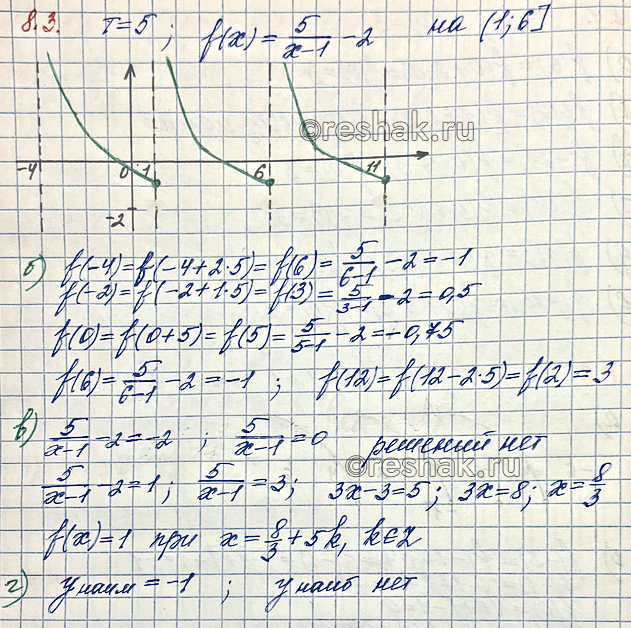 8.3. T=5 ; f(x) = 5/(x-1) - 2 на (1;6]
©reshak.ru
-4 0 1 6 11
-2
б) f(-4) = f(-4+2·5) = f(6) = 5/(6-1) - 2 = -1
f(-2) = f(-2+1·5) = f(3) = 5/(3-1) - 2 = 0,5
f(0) = f(0+5) = f(5) = 5/(5-1) - 2 = -0,75
f(6) = 5/(6-1) - 2 = -1 ; f(12) = f(12-2·5) = f(2) = 3
в) 5/(x-1) - 2 = -2 ; 5/(x-1) = 0 решений нет
©reshak.ru
5/(x-1) - 2 = 1 ; 5/(x-1) = 3 ; 3x-3=5 ; 3x=8 ; x = 8/3
f(x) = 1 при x = 8/3 + 5k, k∈Z
г) y наим = -1 ; y наиб нет